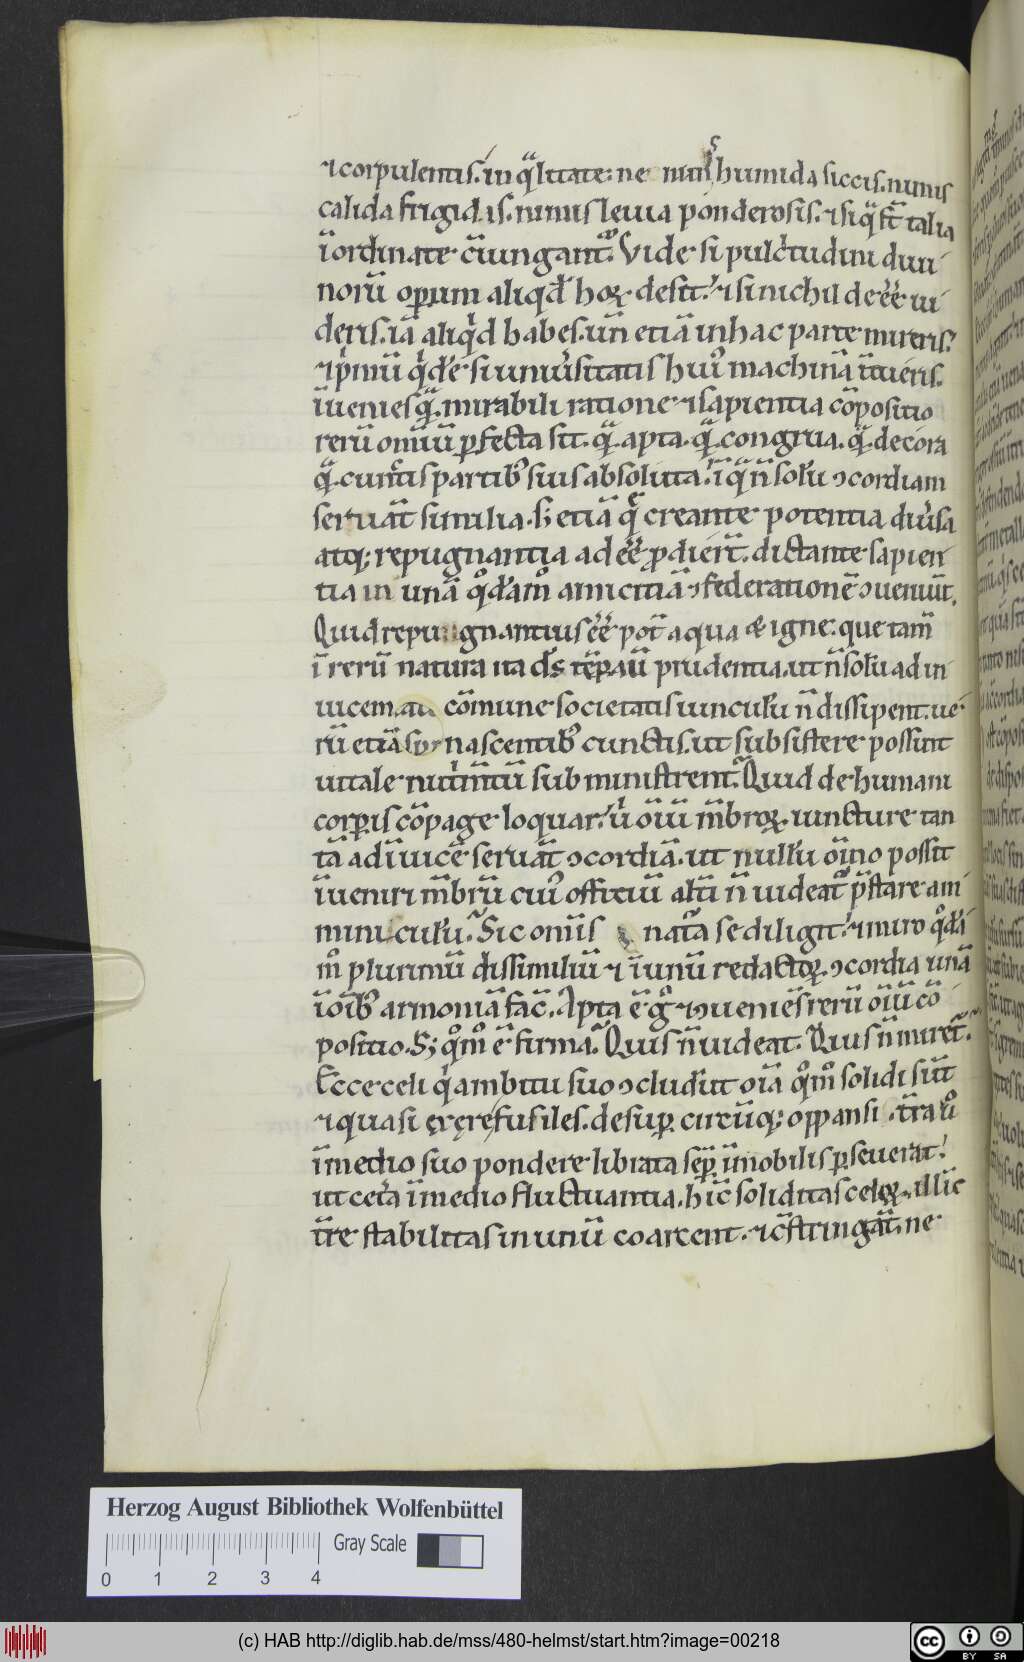 ⁊ corpulentis. in q̃litate: ne nimis humida siccis. nimis
calida frigidis. nimis leuia ponderosis. ⁊ si q̃ st̄ talia
īordinate c̄iungant᷒. Vide si pulc̓tudini diui
norū oꝑum aliqd̓ hoꝝ desit. ⁊ si nichil deēē ui
deris. iā aliqͥd habes. un̄ etiā in hac parte mireris.
⁊ pͥmū qͥdē si uniu̓sitatis huiꝰ machinā ītueris.
īuenies q̃. mirabili ratione ⁊ sapientia cōpositio
rerū omīū ꝑfecta sit. q̃. apta. q̃. congrua. q̃. decora
q̃. cunctis partibꝰ suis absoluta. ī q̃ n̄ solū ↄcordiam
seruāt similia. s; etiā q̃ creante potentia diu̓sa
atq; repugnantia ad ēē ꝓdiert̄. dictante sapien
tia in unā qͦdāmͦ amicitiā ⁊ federationē ↄueniūt.
Quid repugnantius ēē pot̄ aqua & igne. que tam̄
ī rerū natura ita dī tēꝑauī prudentia. ut n̄ solū ad in
uicem comune societatis uinculū n̄ dissipent. ue
rū etiā nascentibꝰ cunctis. ut subsistere possint
uitale nutͥmtū subministrent. Quid de humani
corꝑis cōpage loquar. uͥ oīū mēbroꝝ iuncture tan
tā ad īuicē seruāt ↄcordiā. ut nullū oīno possit
īueniri mēbrū cuiꝰ officiū altͥi n̄ uideat᷒ p̄stare ami
miniculū. Sic omīs nat̄a se diligit. ⁊ miro qͦdā
mͦ plurimū dissimiliū ⁊ ī unū redactoꝝ. ↄcordia unā
ī oībꝰ armoniā fac̄. Apta ē gͦ ⁊ ↄueniēs rerū oīū cō
positio. S; qͦmͦ ē firma. Quis n̄ uideat. Quis n̄ miret᷒.
Ecce celi qͥ ambitu suo ↄcludūt oīa qͦmͦ solidi sūt
⁊ quasi ęs ęre fusiles. desuꝑ circūq; oppansi. t̄ra uͦ
ī medio suo pondere librata sēꝑ īmobilis ꝑseuerat.
ut cet̓a ī medio fluctuantia. hīc soliditas celoꝝ. illīc
t̄re stabilitas in unū coarcent. ⁊ c̄stringāt. ne
Herzog August Bibliothek Wolfenbüttel
Gray Scale
0 1 2 3 4
(c) HAB http://diglib.hab.de/mss/480-helmst/start.htm?image=00218
cc BY SA